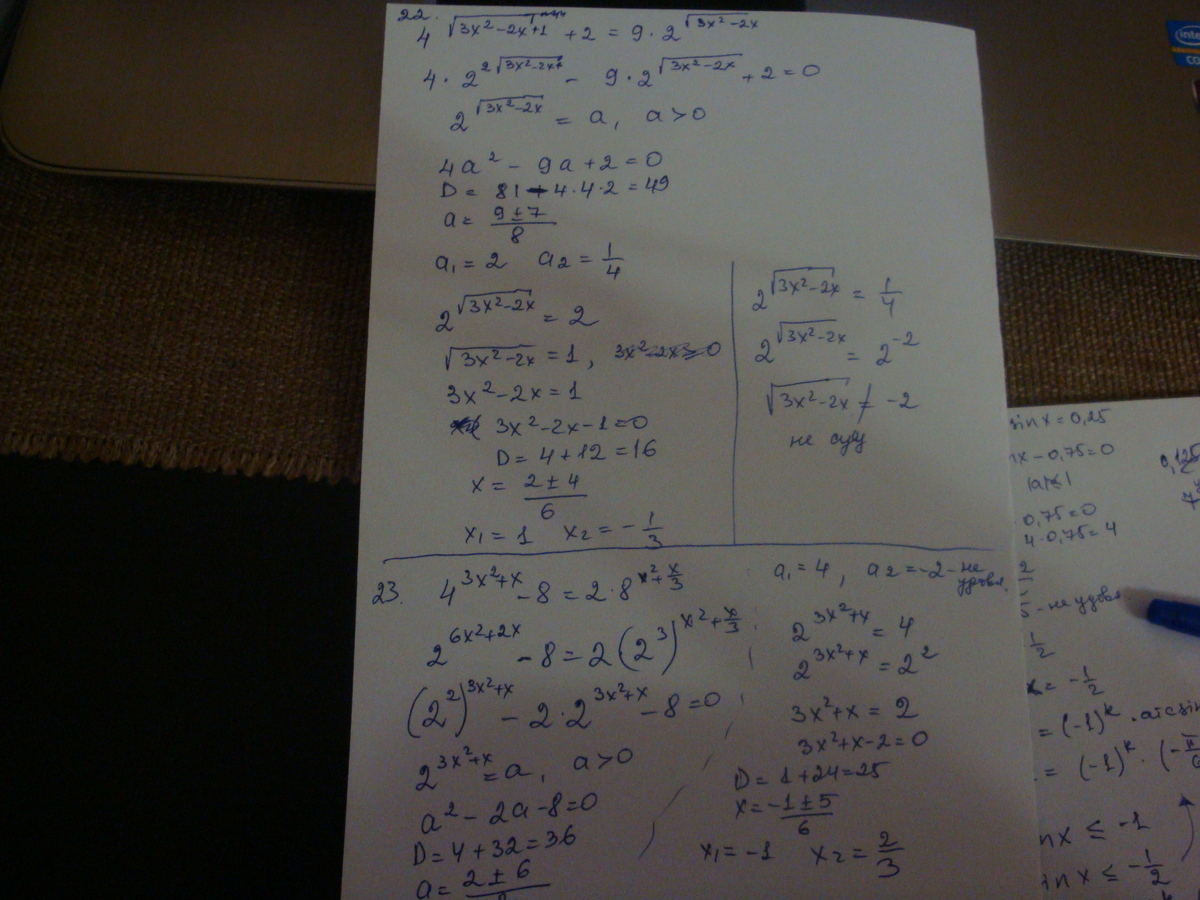 22.
4^{√(3x²-2x+1)} + 2 = 9 · 2^{√(3x²-2x)}
4 · 2^{2√(3x²-2x)} - 9 · 2^{√(3x²-2x)} + 2 = 0
2^{√(3x²-2x)} = a, a > 0
4a² - 9a + 2 = 0
D = 81 - 4·4·2 = 49
a = (9 ± 7)/8
a₁ = 2 a₂ = 1/4
2^{√(3x²-2x)} = 2
√(3x²-2x) = 1,
3x² - 2x = 1
3x² - 2x - 1 = 0
D = 4 + 12 = 16
x = (2 ± 4)/6
x₁ = 1 x₂ = -1/3
2^{√(3x²-2x)} = 1/4
2^{√(3x²-2x)} = 2^{-2}
√(3x²-2x) ≠ -2
не сущ
23. 4^{3x²+x} - 8 = 2·8^{x²+x/3}
2^{6x²+2x} - 8 = 2·(2³)^{x²+x/3}
(2²)^{3x²+x} - 2·2^{3x²+x} - 8 = 0
2^{3x²+x} = a, a > 0
a² - 2a - 8 = 0
D = 4 + 32 = 36
a = (2 ± 6)/2
a₁ = 4, a₂ = -2 - не
удовл.
2^{3x²+x} = 4
2^{3x²+x} = 2²
3x² + x = 2
3x² + x - 2 = 0
D = 1 + 24 = 25
x = (-1 ± 5)/6
x₁ = -1 x₂ = 2/3
sin x = 0,25
nx - 0,75 = 0
0,125
|a| ≤ 1
0,75 = 0
4·0,75 = 4
- не удовл.
1/2
x = -1/2
= (-1)^k · arcsin
= (-1)^k · (-π/6
nx ≤ -1
in x ≤ -1/2
intel